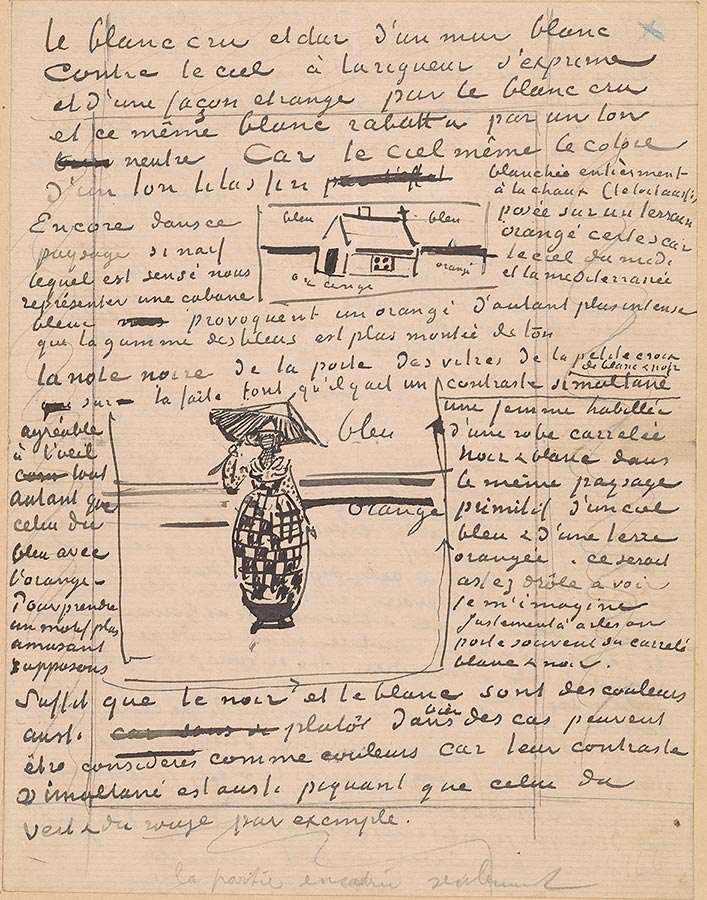 le blanc cru et dur d'un mur blanc
contre le ciel à la rigueur s'exprime
et d'une façon etrange par le blanc cru
et ce même blanc rabattu par un ton
neutre Car le ciel même le colore
d'un ton lilas fin
Encore dans ce
paysage si naif
lequel est sensé nous
représenter une cabane
bleu
bleu
orange
orangé
blanchée entièrement
à la chaux (le toit aussi)
posée sur un terrain
orangé certes car
le ciel du midi
et la mediterranée
bleue provoquent un orangé d'autant plus intense
que la gamme des bleus est plus montée de ton
la note noire de la porte des vitres de la petite croix
sur la faite font qu'il y ait un contraste simultané
de blanc & noir
agréable
à l'oeil
tout
autant que
celui du
bleu avec
l'orangé
Pour prendre
un motif plus
amusant
supposons
bleu
orange
une femme habillée
d'une robe carrelée
noir & blanc dans
le même paysage
primitif d'un ciel
bleu & d'une terre
orangée. ce serait
assez drôle à voir
je m'imagine
Justement à arles on
porte souvent du carrelé
blanc & noir.
Suffit que le noir et le blanc sont des couleurs
aussi car sous si plutôt dans bien des cas peuvent
être considérés comme couleurs car leur contraste
simultané est aussi piquant que celui du
vert & du rouge par exemple.
la partie encadrée seulement